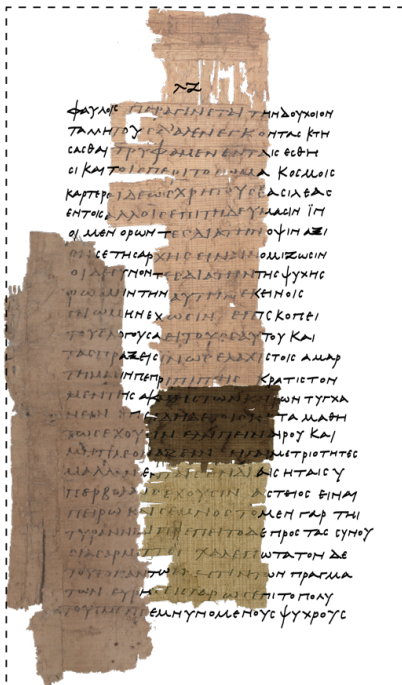 λζ
φαυλοις παραγινεται την δουχοιον
ταλλητουσδιενεγκοντας κτη
σασθαι τρυφα μεν ενταις εσθη
σι και τοις περι το σωμα κοσμοις
καρτερει δε ως χρη τους βασιλεας
εν τοις αλλοις επιτηδευμασιν ϊν
οι μεν ορωντες δια την οψιν αξι
ον σε της αρχης ειναι νομιζωσιν
οι δε δια την της ψυχης
ρωμην την αυτην εκεινοις
γνωμην εχωσιν επισκοπει
τους λογους αει τους σαυτου και
τας πραξεις ιν ως ελαχιστοις αμαρ
τημασιν περιπιπτης κρατιστον
μεν της των καιρων τυγχα
νειν επειδη δε δυσκαταμαθη
τως εχουσιν ελλειπειν αιρου και
μη πλεοναζειν αι γαρ μετριοτητες
μαλλον εν ταις ενδειαις η ταις υ
περβολαις εχουσιν αστειος ειναι
πειρω και σεμνος το μεν γαρ τηι
τυραννιδι πρεπει το δε προς τας συνου
σιας αρμοττει χαλεπωτατον δε
τουτο παντων εστιν των πραγμα
των ευρησεις γαρ ως επι το πολυ
τους μεν σεμνυνομενους ψυχρους